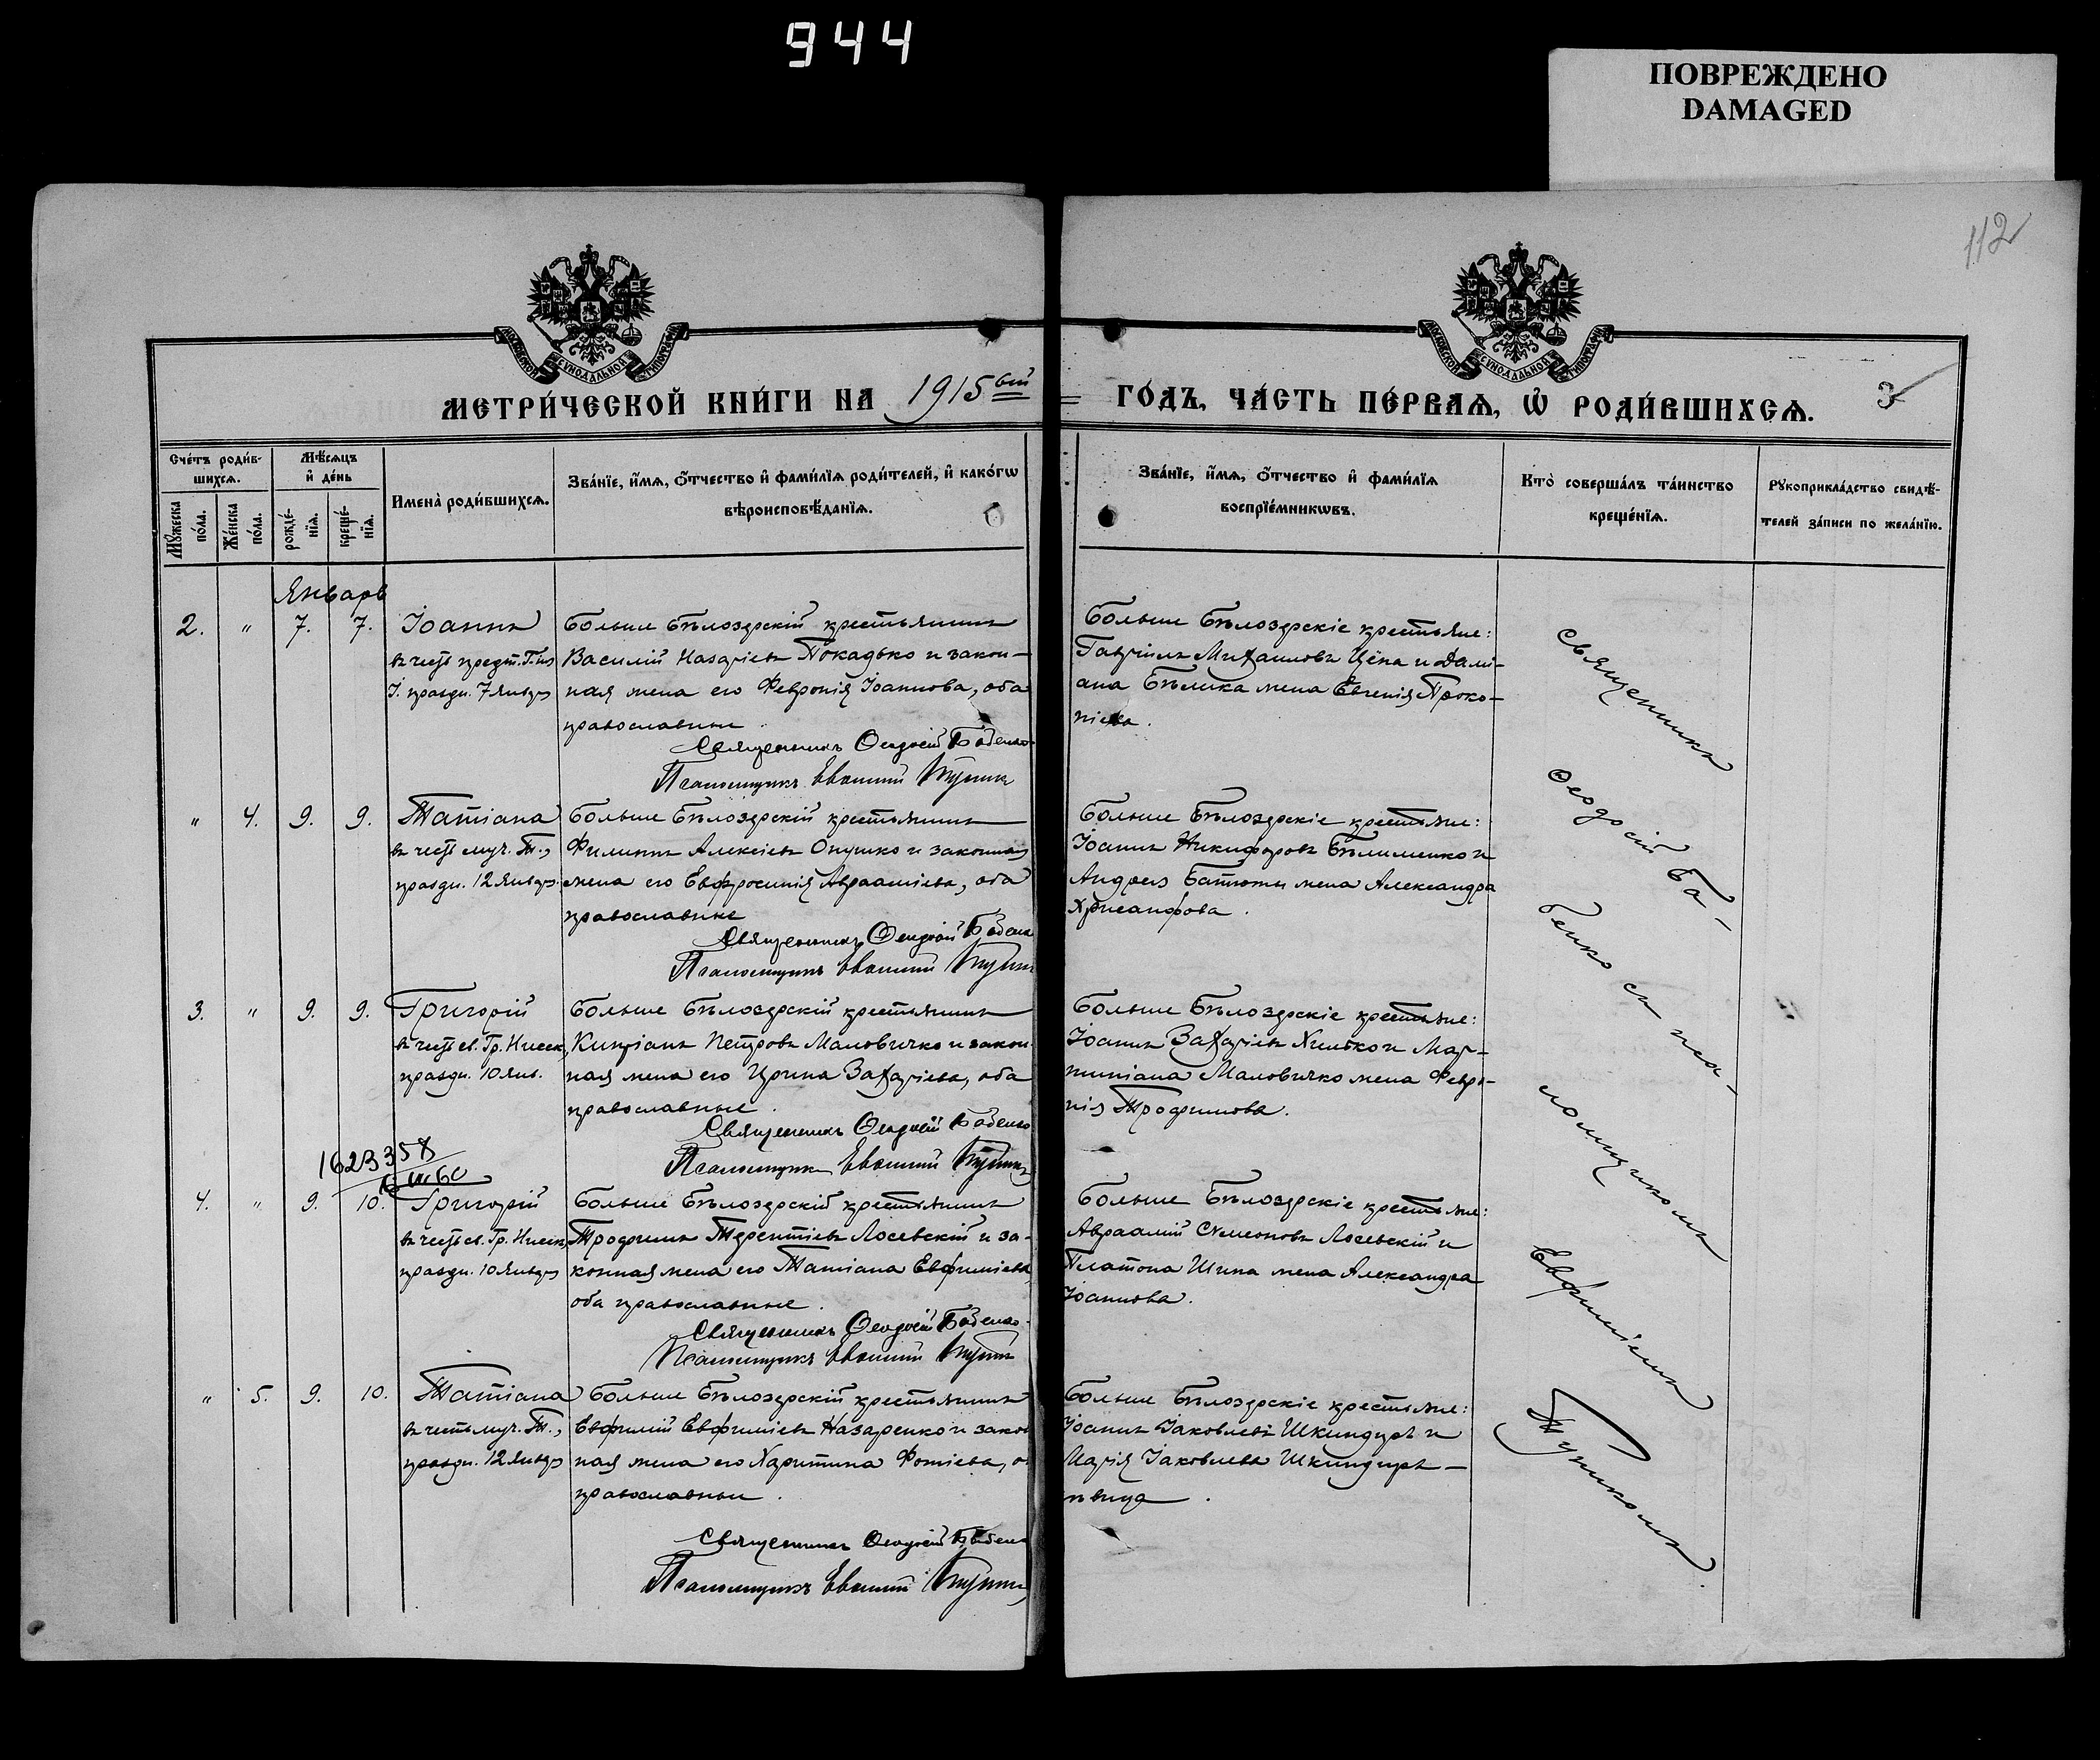 944
ПОВРЕЖДЕНО
DAMAGED
112
МЕТРИ́ЧЕСКОЙ КНИ́ГИ НА 1915ый
ГО́ДЪ, ЧА́СТЬ ПЕ́РВАѦ, Ѡ҆ РОДИ́ВШИХСѦ.
3
Сче́тъ роди́в-
шихсѧ.
Мѣ́сѧцъ
и҆ де́нь
Имена̀ роди́вшихсѧ.
Зва́нїе, и҆́мѧ, ѻ҆́тчество и҆ фами́лїѧ роди́телей, и҆ како́гѡ
вѣроисповѣ́данїѧ.
Мꙋ́жеска
по́ла.
Же́нска
по́ла.
рожде́-
нїѧ.
креще́-
нїѧ.
Зва́нїе, и҆́мѧ, ѻ҆́тчество и҆ фами́лїѧ
воспрїе́мникѡвъ.
Кто̀ соверша́лъ та́инство
креще́нїѧ.
Рꙋкоприкла́дство свидѣ́-
телей за́писи по жела́нїю.
Январь
2. " 7. 7.
Іоаннъ
въ честь предт. Г.
І. праздн. 7 Января
Больше Бѣлозерскій крестьянинъ
Василій Назаріевъ Покадько и закон-
ная жена его Февронія Іоаннова, оба
православные.
Священникъ Ѳеодосій Бабенко
Псаломщикъ Евфимій
Больше Бѣлозерскіе крестьяне:
Гавріилъ Михаиловъ Цёна и Дамі-
ана Бѣлика жена Евгенія Проко-
піева.
" 4. 9. 9.
Татіана
въ честь муч. Т.,
праздн. 12 Января
Больше Бѣлозерскій крестьянинъ
Филиппъ Алексіевъ Онушко и законная
жена его Евфросинія Авраамиева, оба
православные
Священникъ Ѳеодосій Бабенко
Псаломщикъ Евфимій
Больше Бѣлозерскіе крестьяне:
Іоаннъ Никифоровъ Бѣлименко и
Андрея Батюты жена Александра
Хрисанфова.
3. " 9. 9.
Григорій
въ честь св. Гр. Нисск,
праздн. 10 Янв.
Больше Бѣлозерскій крестьянинъ
Кипріанъ Петровъ Маловичко и закон-
ная жена его Ирина Захаріева, оба
православные.
Священникъ Ѳеодосій Бабенко
Псаломщикъ Евфимій
Больше Бѣлозерскіе крестьяне:
Іоаннъ Захаріевъ Хилько и Мар-
тиніана Маловичко жена Февро-
нія Трофимова.
1623358
4. " 9. 10.
Григорій
въ честь св. Гр. Нисск,
праздн. 10 Января
Больше Бѣлозерскій крестьянинъ
Трофимъ Терентіевъ Лосевскій и за-
конная жена его Татіана Евфиміева,
оба православные.
Священникъ Ѳеодосій Бабенко
Псаломщикъ Евфимій
Больше Бѣлозерскіе крестьяне:
Авраамій Симеоновъ Лосевскій и
Платона Шина жена Александра
Іоаннова.
" 5. 9. 10.
Татіана
въ честь муч. Т.,
праздн. 12 Января
Больше Бѣлозерскій крестьянинъ
Евфимій Евфиміевъ Назаренко и закон
ная жена его Харитина Фотіева, о
православные.
Священникъ Ѳеодосій Бабенко
Псаломщикъ Евфимій
Больше Бѣлозерскіе крестьяне:
Іоаннъ Іаковлевъ Шкиндирь и
Марія Іаковлева Шкиндирь-
Священникъ
Ѳеодосій Ба-
бенко съ пса-
ломщикомъ
Евфиміемъ